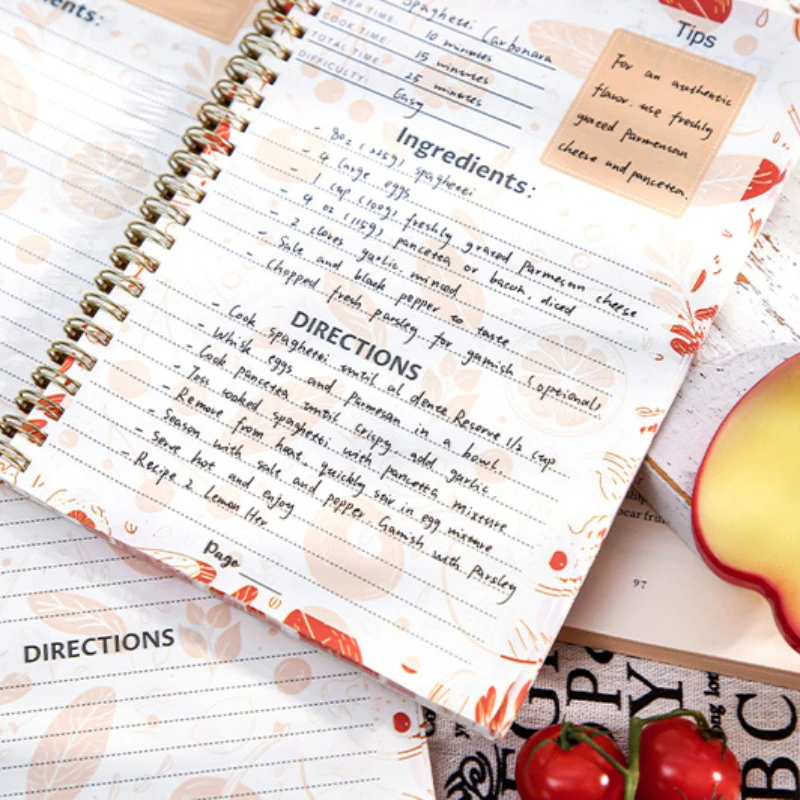 ents:
EP TIME: Spaghetti Carbonara
COOK TIME: 10 minutes
TOTAL TIME: 15 minutes
DIFFICULTY: 25 minutes
Easy
Tips
For an authentic
flavor. use freshly
grated Parmensan
cheese and pancetea.
Ingredients:
- 8oz (225g) spaghetei
- 4 large eggs
- 1 cup (100g) freshly grated Parmesan cheese
- 4 oz (115g) pancetea or bacon, diced
- 2 cloves garlic. minced
- Sale and black pepper to taste
- Chopped fresh parsley for garnish (optional)
DIRECTIONS
- Cook spaghetti until al dence. Reserve 1/2 cup
- Whisk eggs and Parmesan in a bowl.
- Cook pancetea until crispy. add garlic.
- Toss cooked spaghetti with pancetta mixture
- Remove from heat, quickly stir in egg mixture
- Season with sale and pepper. Garnish with parsley
- Serve hot and enjoy
- Recipe 2 Lemon Her
Page
DIRECTIONS
bear fru
97